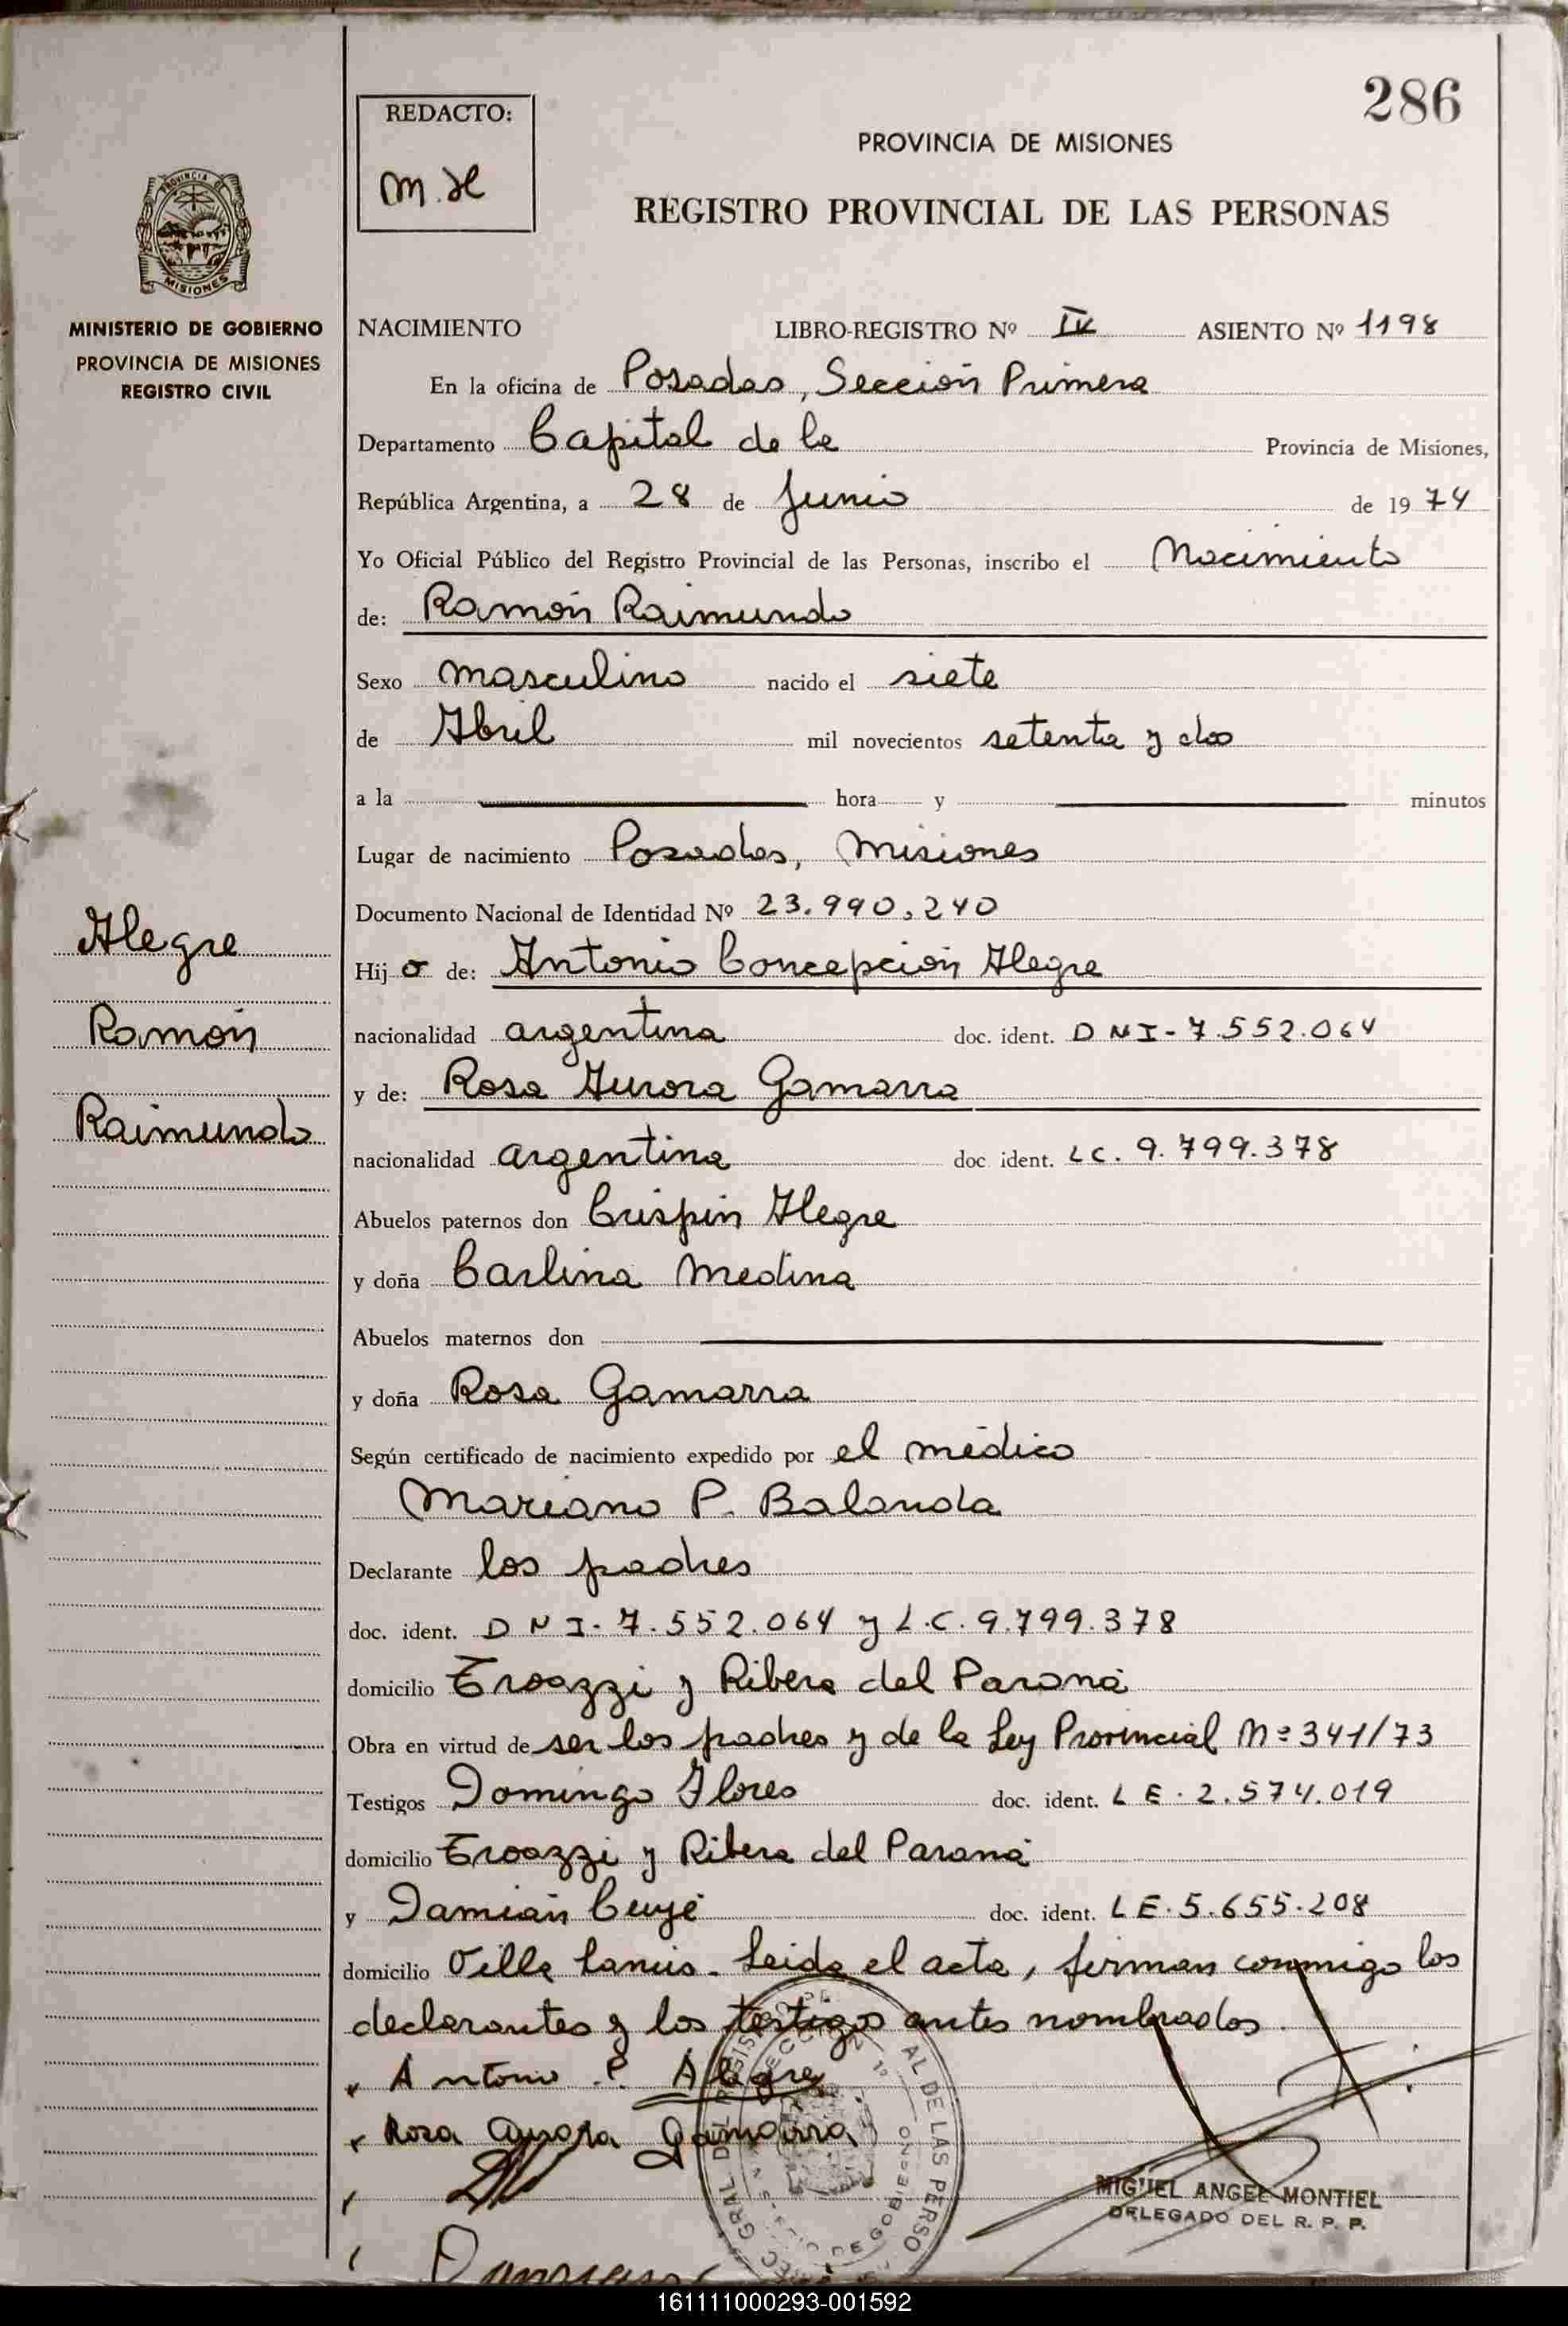 286
REDACTO:
m.H
PROVINCIA DE MISIONES
REGISTRO PROVINCIAL DE LAS PERSONAS
PROVINCIA DE
MISIONES
MINISTERIO DE GOBIERNO
PROVINCIA DE MISIONES
REGISTRO CIVIL
NACIMIENTO LIBRO-REGISTRO Nº IV ASIENTO Nº 1198
En la oficina de Posadas, Sección Primera
Departamento Capital de la Provincia de Misiones,
República Argentina, a 28 de Junio de 1974
Yo Oficial Público del Registro Provincial de las Personas, inscribo el Nacimiento
de: Ramón Raimundo
Sexo masculino nacido el siete
de Abril mil novecientos setenta y dos
a la hora y minutos
Lugar de nacimiento Posadas, Misiones
Documento Nacional de Identidad Nº 23.990,240
Alegre
Ramón
Raimundo
Hijo de: Antonio Concepción Alegre
nacionalidad argentina doc. ident. DNI-7.552.064
y de: Rosa Aurora Gamarra
nacionalidad argentina doc ident. LC. 9.799.378
Abuelos paternos don Crispín Alegre
y doña Carlina Medina
Abuelos maternos don
y doña Rosa Gamarra
Según certificado de nacimiento expedido por el médico
Mariano P. Balanda
Declarante los padres
doc. ident. DNI-7.552.064 y L.C. 9.799.378
domicilio Troazzi y Ribera del Paraná
Obra en virtud de ser los padres y de la Ley Provincial Nº 341/73
Testigos Domingo Flores doc. ident. LE. 2.574.019
domicilio Troazzi y Ribera del Paraná
y Damián Cuyé doc. ident. LE. 5.655.208
domicilio Villa Lanús. Leida el acta, firman conmigo los
declarantes y los testigos antes nombrados.
Antonio C. Alegre
Rosa Aurora Gamarra
MIGUEL ANGEL MONTIEL
DELEGADO DEL R. P. P.
161111000293-001592